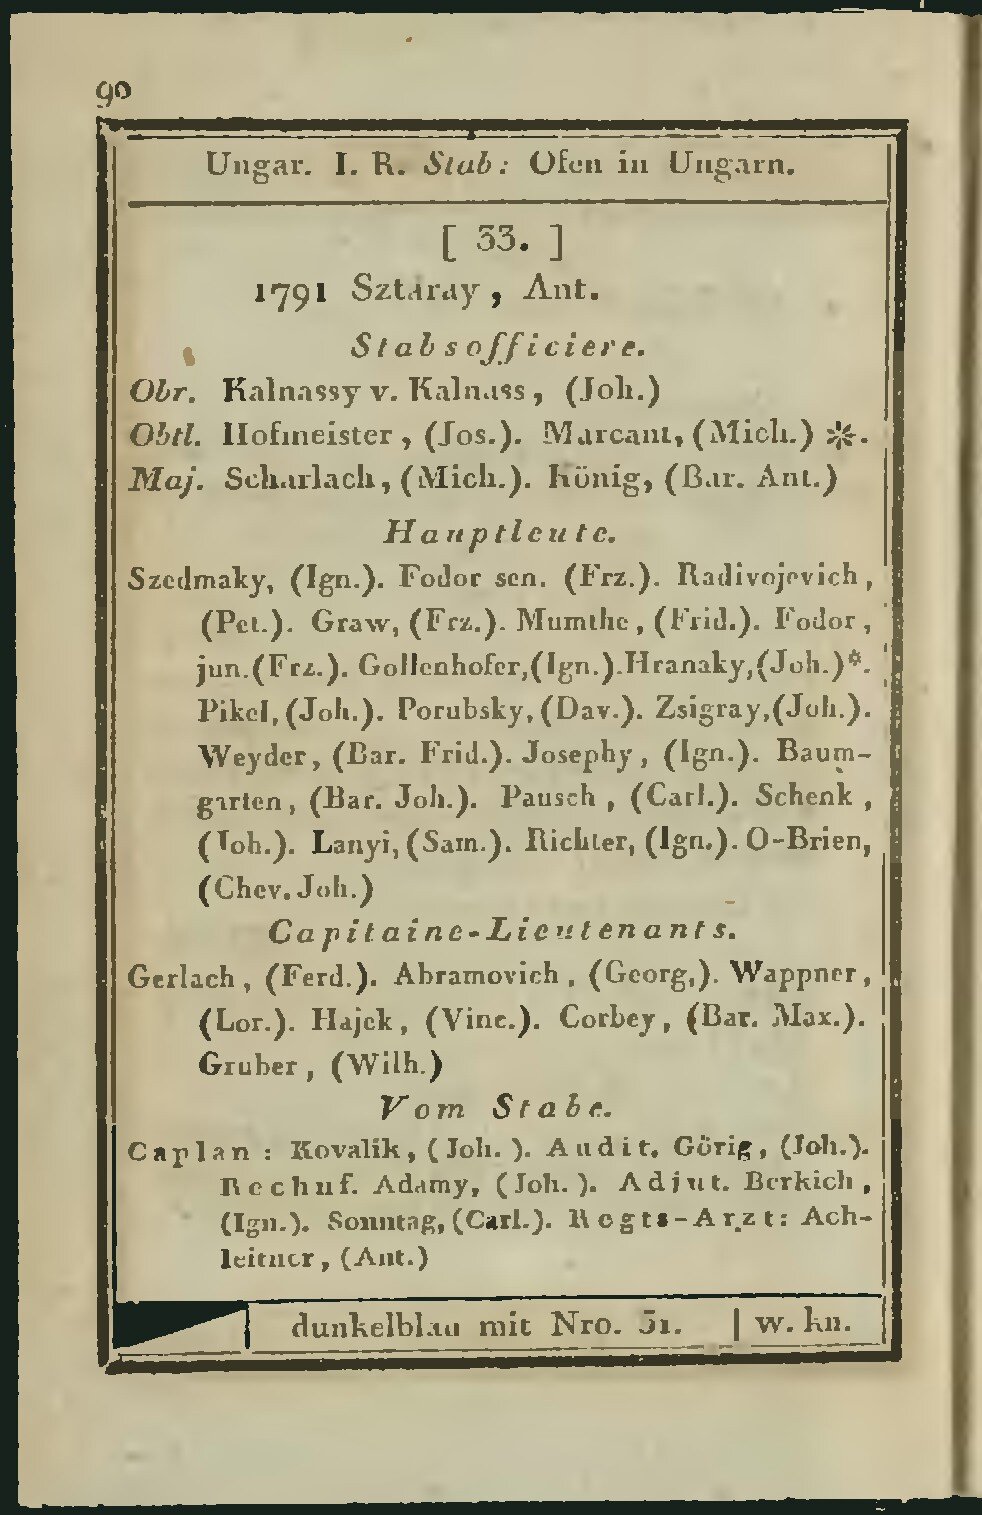 90
Ungar. I. R. Stab: Ofen in Ungarn.
[ 33. ]
1791 Sztáray, Ant.
Stabsofficiere.
Obr. Kalnassy v. Kalnass, (Joh.)
Obtl. Hofmeister, (Jos.). Marcant, (Mich.) ※.
Maj. Scharlach, (Mich.). König, (Bar. Ant.)
Hauptleute.
Szedmaky, (Ign.). Fodor sen. (Frz.). Radivojevich,
(Pet.). Graw, (Frz.). Mumthe, (Frid.). Fodor,
jun. (Frz.). Gollenhofer, (Ign.). Hranaky, (Joh.)*.
Pikel, (Joh.). Porubsky, (Dav.). Zsigray, (Joh.).
Weyder, (Bar. Frid.). Josephy, (Ign.). Baum-
garten, (Bar. Joh.). Pausch, (Carl.). Schenk,
(Joh.). Lanyi, (Sam.). Richter, (Ign.). O-Brien,
(Chev. Joh.)
Capitaine-Lieutenants.
Gerlach, (Ferd.). Abramovich, (Georg,). Wappner,
(Lor.). Hajek, (Vinc.). Corbey, (Bar. Max.).
Gruber, (Wilh.)
Vom Stabe.
Caplan: Kovalik, (Joh.). Audit. Görig, (Joh.).
Rechnf. Adamy, (Joh.). Adjut. Berkich,
(Ign.). Sonntag, (Carl.). Regts-Arzt: Ach-
leitner, (Ant.)
dunkelblau mit Nro. 51. | w. kn.